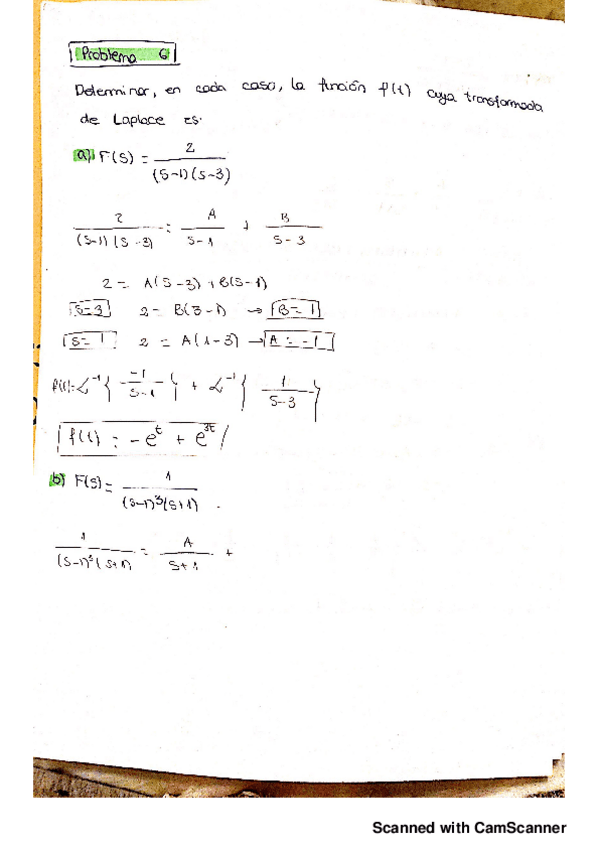 Problema 6
Determinar, en cada caso, la función f(t) cuya transformada
de Laplace es:
a) F(s) = 2 / (s-1)(s-3)
2 / (s-1)(s-3) = A / s-1 + B / s-3
2 = A(s-3) + B(s-1)
s=3 2 = B(3-1) → B = 1
s=1 2 = A(1-3) → A = -1
f(t) = L⁻¹{ -1 / s-1 } + L⁻¹{ 1 / s-3 }
f(t) = -e^t + e^3t
b) F(s) = 1 / (s-1)³(s+1)
1 / (s-1)³(s+1) = A / s+1 +
Scanned with CamScanner